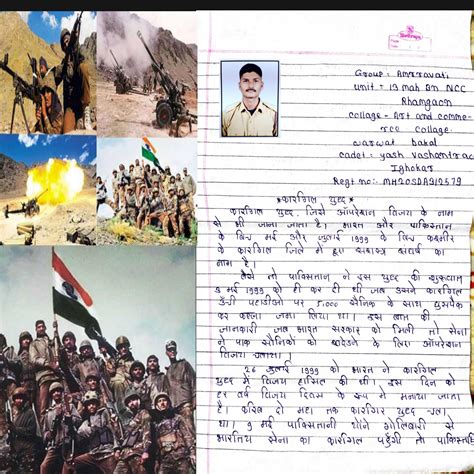 Group: Amravati
unit: 13 mah Bn NCC
Khamgaon
collage - Art and comme-
rce collage.
warwat bakal
cadet: yash vashantrao
Ighokar
Regt no:- MH20SDA912579
कारगिल युद्ध
कारगिल युद्ध, जिसे ऑपरेशन विजय के नाम
से भी जाना जाता है। भारत और पाकिस्तान
के बिच मई और जुलाई 1999 के बिच कश्मीर
के कारगिल जिले में हुए सशस्त्र संघर्ष का
नाम है।
वैसे तो पाकिस्तान ने इस युद्ध की शुरूवात
3 मई 1999 को ही कर दी थी जब उसने कारगिल
ऊँची पहाडीयो पर 5,000 सैनिक के साथ घुसपैठ
कर कब्जा जमा लिया था। इस बात की
जानकारी जब भारत सरकार को मिली तो सेना
ने पाक सैनिकों को खदेडने के लिए ऑपरेशन
विजय चलाया।
26 जुलाई 1999 को भारत ने कारगिल
युद्ध में विजय हासिल की थी। इस दिन को
हर वर्ष विजय दिवस के रूप में मनाया जाता
है। करिब दो महा तक कारगिर युद्ध चला
था। 9 मई पाकीस्तानी गोलिबारी से
भारतिय सेना का कारगिल पहुँची तो पाकिस्तान